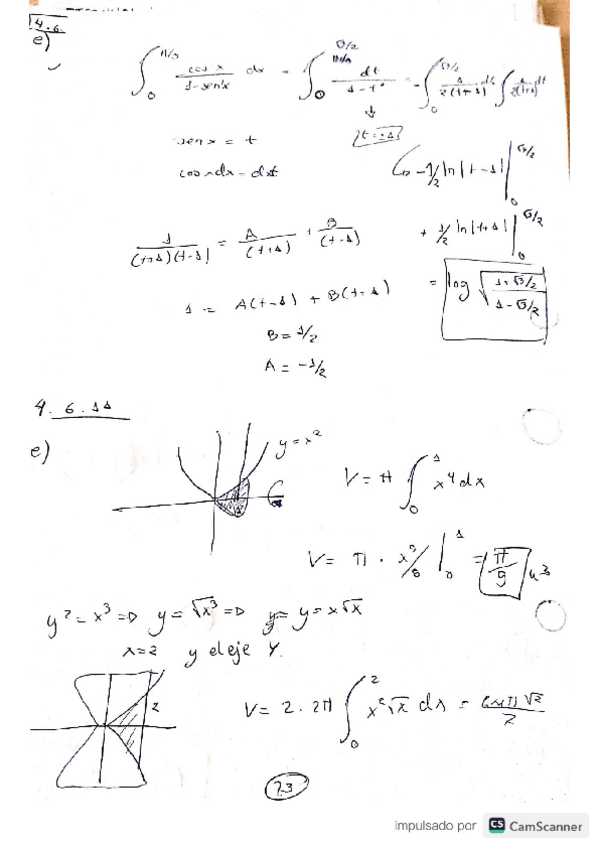 4.6.
e)
∫₀^{π/3} cos x / 1-sen²x dx = ∫₀^{√3/2} dt / 1-t² = -∫₀^{√3/2} 1/2(t-1) dt ∫ 1/2(t+1) dt
sen x = t
cos x dx = dt
t=±1
-1/2 ln|t-1| |₀^{√3/2}
+ 1/2 ln|t+1| |₀^{√3/2}
1/(t+1)(t-1) = A/(t+1) + B/(t-1)
= log √(1+√3/2 / 1-√3/2)
1 = A(t-1) + B(t+1)
B = 1/2
A = -1/2
4.6.11
e)
y=x²
V = π ∫₀¹ x⁴ dx
V = π · x⁵/5 |₀¹ = π/5 u³
y² = x³ => y = √x³ => y = x√x
x=2 y el eje Y.
2
V = 2 · 2π ∫₀² x²√x dx =
23
impulsado por CS CamScanner